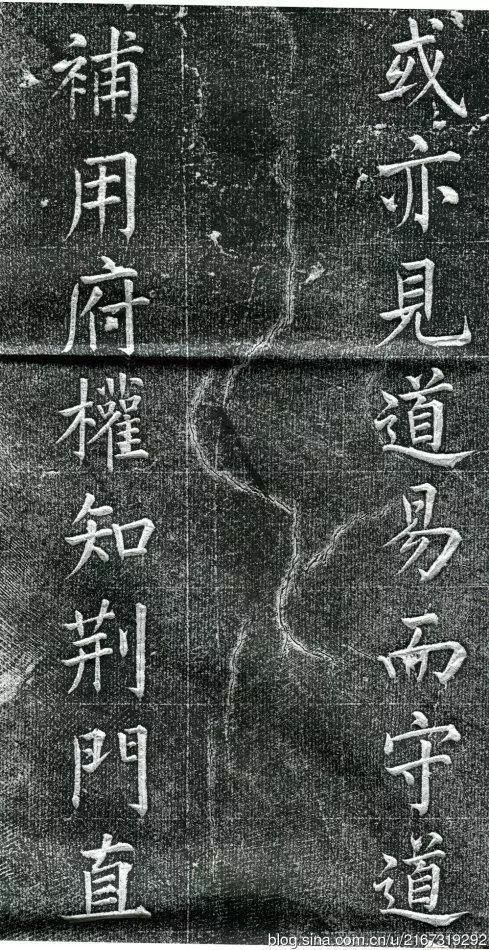 或亦見道易而守道
補用府權知荆門直
blog.sina.com.cn/u/2167319292